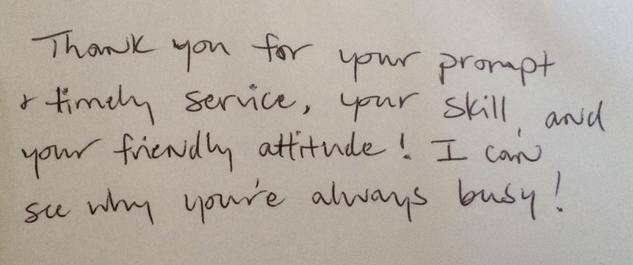 Thank you for your prompt
& timely service, your skill, and
your friendly attitude! I can
see why you're always busy!